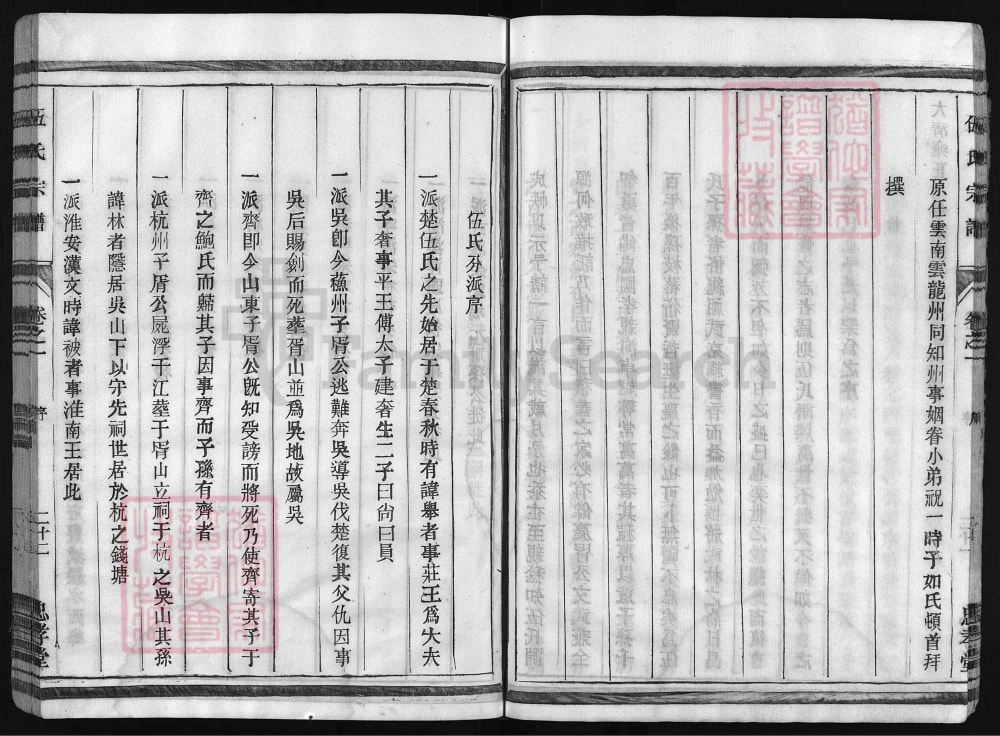 伍氏宗譜
卷之一
原任雲南雲龍州同知州事姻眷小弟祝一時子如氏頓首拜
撰
忠孝堂
伍氏分派序
一派楚伍氏之先始居于楚春秋時有諱舉者事莊王爲大夫
其子奢事平王傅太子建奢生二子曰尙曰員
一派吳卽今蘓州子胥公逃難奔吳導吳伐楚復其父仇因事
吳后賜劍而死葬胥山並爲吳地故屬吳
一派齊卽今山東子胥公旣知受謗而將死乃使齊寄其子于
齊之鮑氏而歸其子因事齊而子孫有齊者
一派杭州子胥公屍浮于江葬于胥山立祠于杭之吳山其孫
諱林者隱居吳山下以守先祠世居於杭之錢塘
一派淮安漢文時諱被者事淮南王居此
伍氏宗譜
卷之一
序
二十二
忠孝堂
FamilySearch